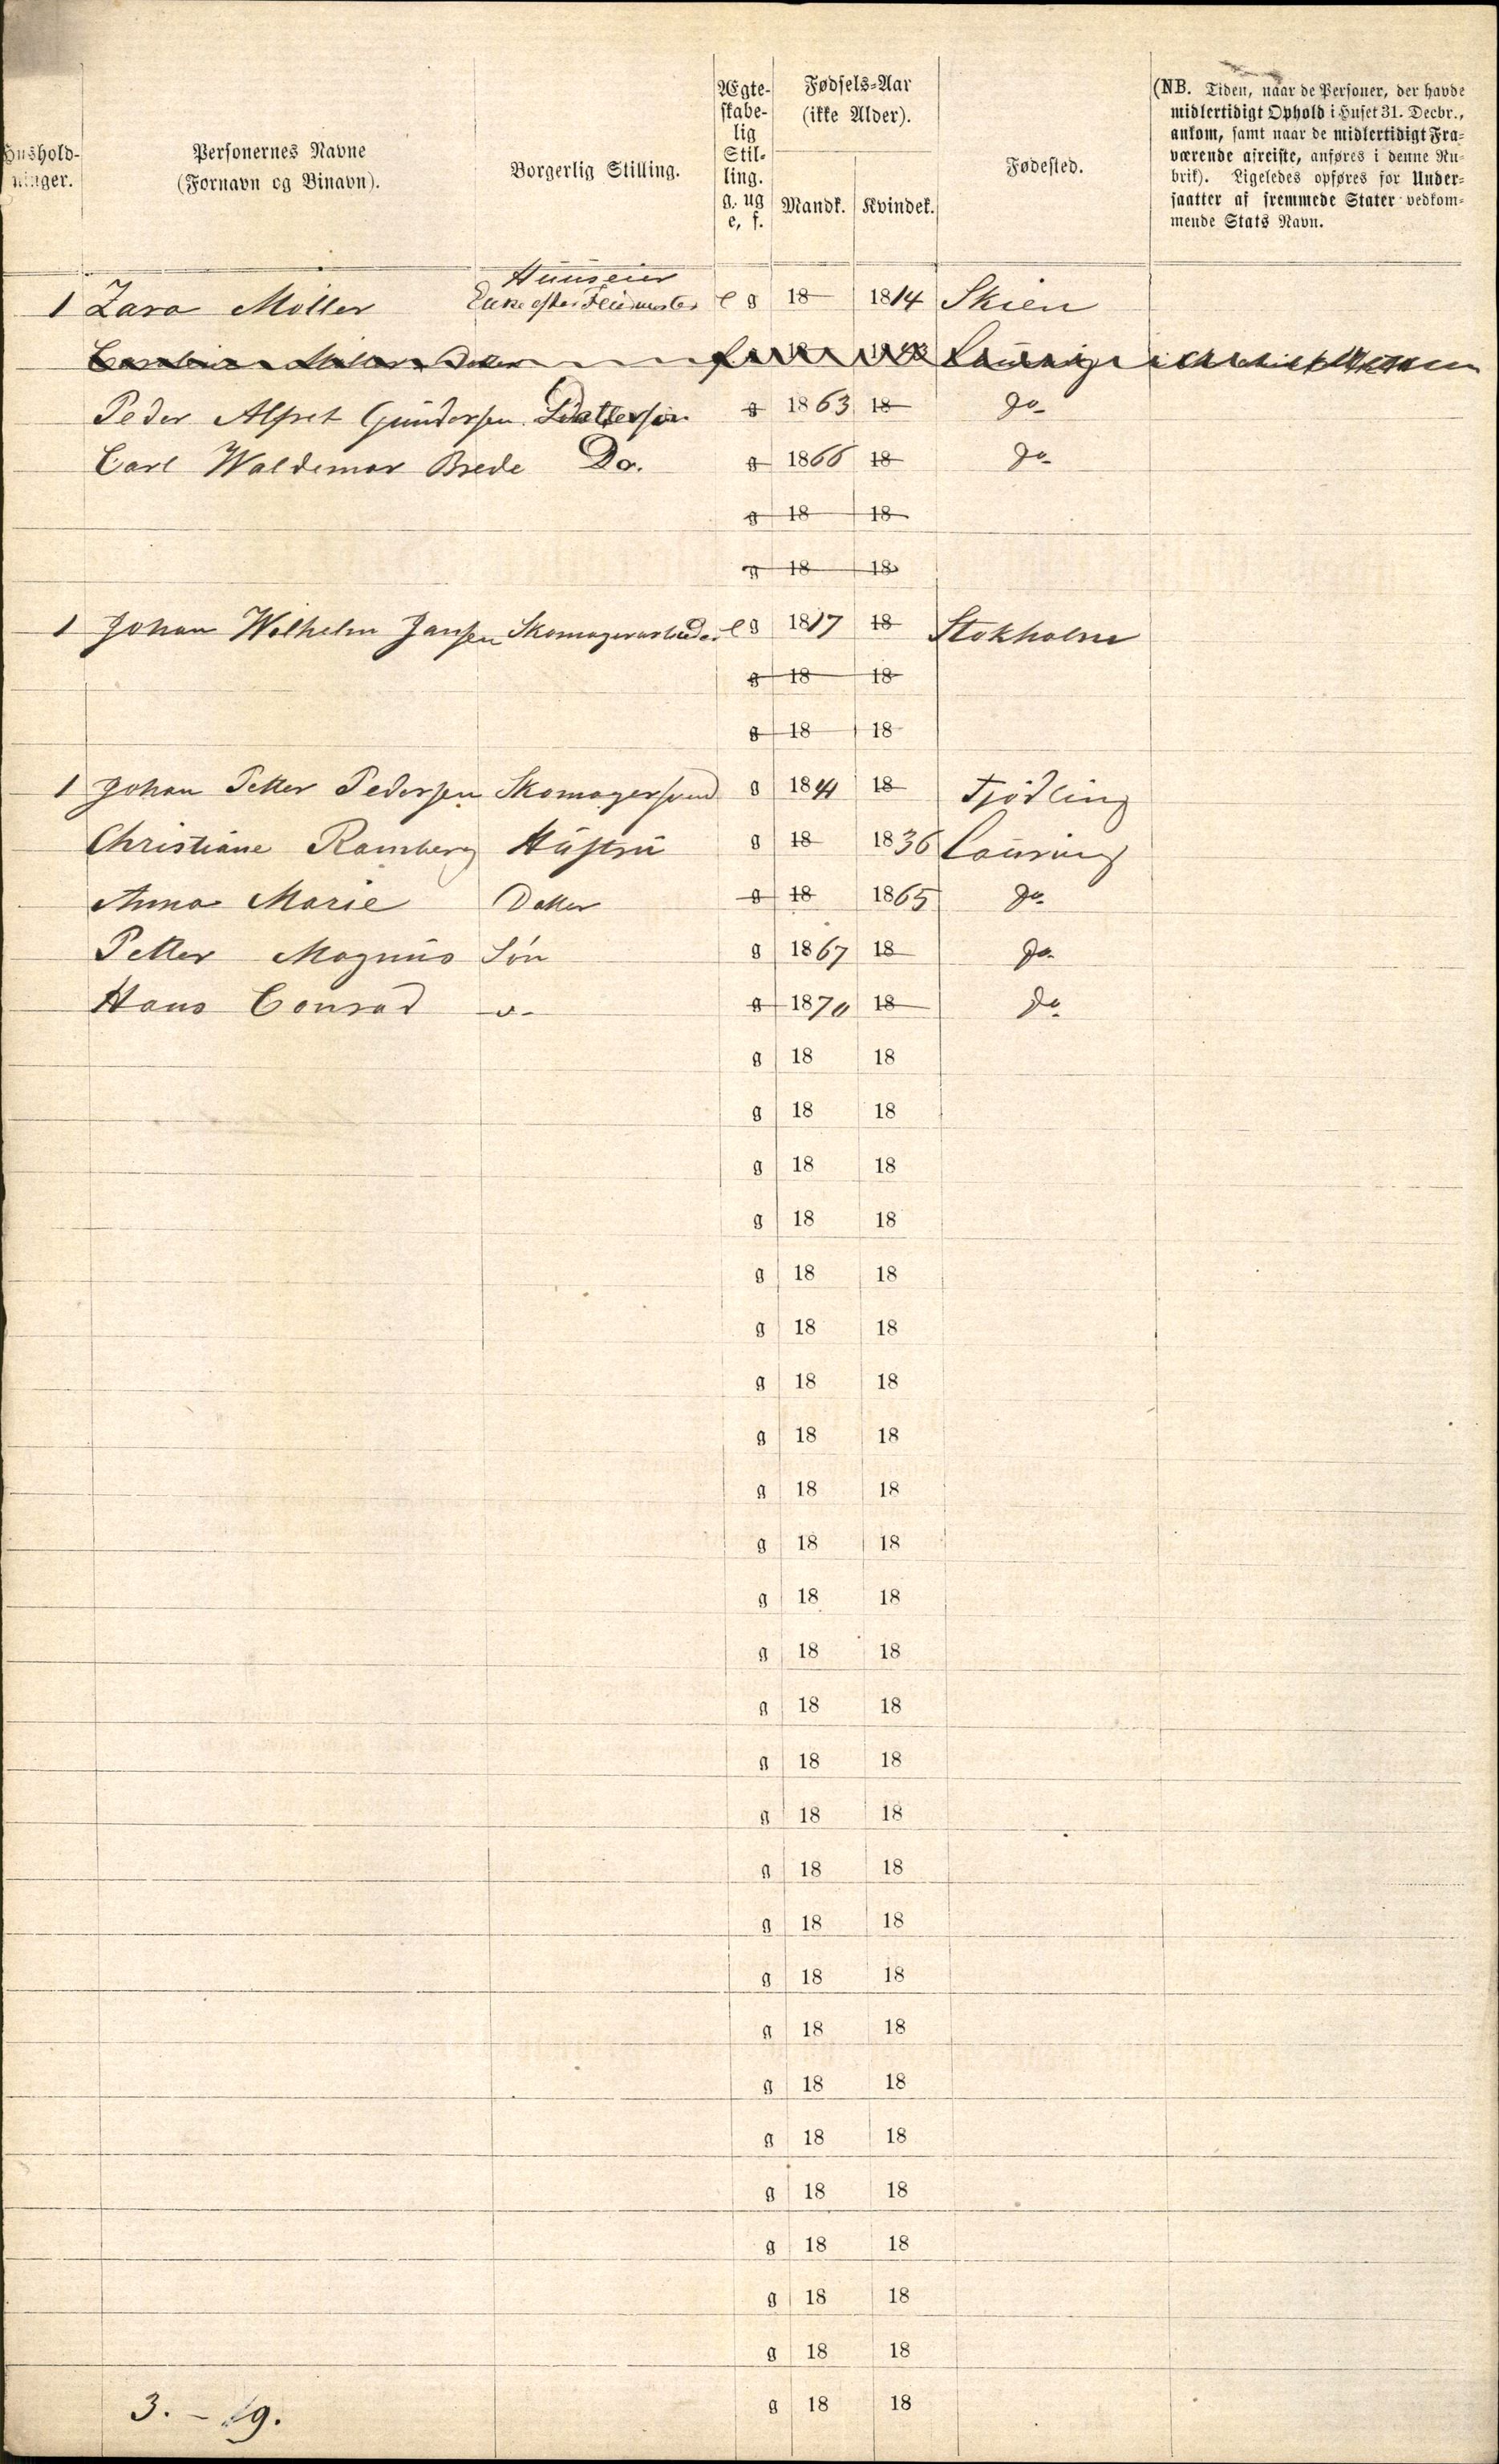 Hushold-
ninger.
Personernes Navne
(Fornavn og Binavn).
Borgerlig Stilling.
Ægte-
skabe-
lig
Stil-
ling.
g. ug
e, f.
Fødsels-Aar
(ikke Alder).
Mandk. Kvindek.
Fødested.
(NB. Tiden, naar de Personer, der havde
midlertidigt Ophold i Huset 31. Decbr.,
ankom, samt naar de midlertidigt Fra-
værende afreiste, anføres i denne Ru-
brik). Ligeledes opføres for Under-
saatter af fremmede Stater vedkom-
mende Stats Navn.
Huuseier
1 Zara Møller Enke efter e g 18 1814 Skien
Peder Alfret Gundersen Dattersøn g 1863 18 Do-
Carl Waldemar Brede Do. g 1866 18 Do-
g 18 18
g 18 18
1 Johan Wilhelm Jansen Skomagerarbeider e g 1817 18 Stokholm
g 18 18
g 18 18
1 Johan Petter Pedersen Skomagersvend g 1841 18 Tjødling
Christiane Ramberg Hustru g 18 1836 Laurvig
Anna Marie Datter g 18 1865 Do-
Petter Magnus Søn g 1867 18 Do-
Hans Conrad -o- g 1870 18 Do-
g 18 18
g 18 18
g 18 18
g 18 18
g 18 18
g 18 18
g 18 18
g 18 18
g 18 18
g 18 18
g 18 18
g 18 18
g 18 18
g 18 18
g 18 18
g 18 18
g 18 18
g 18 18
g 18 18
g 18 18
g 18 18
g 18 18
g 18 18
g 18 18
g 18 18
g 18 18
3. - 9.